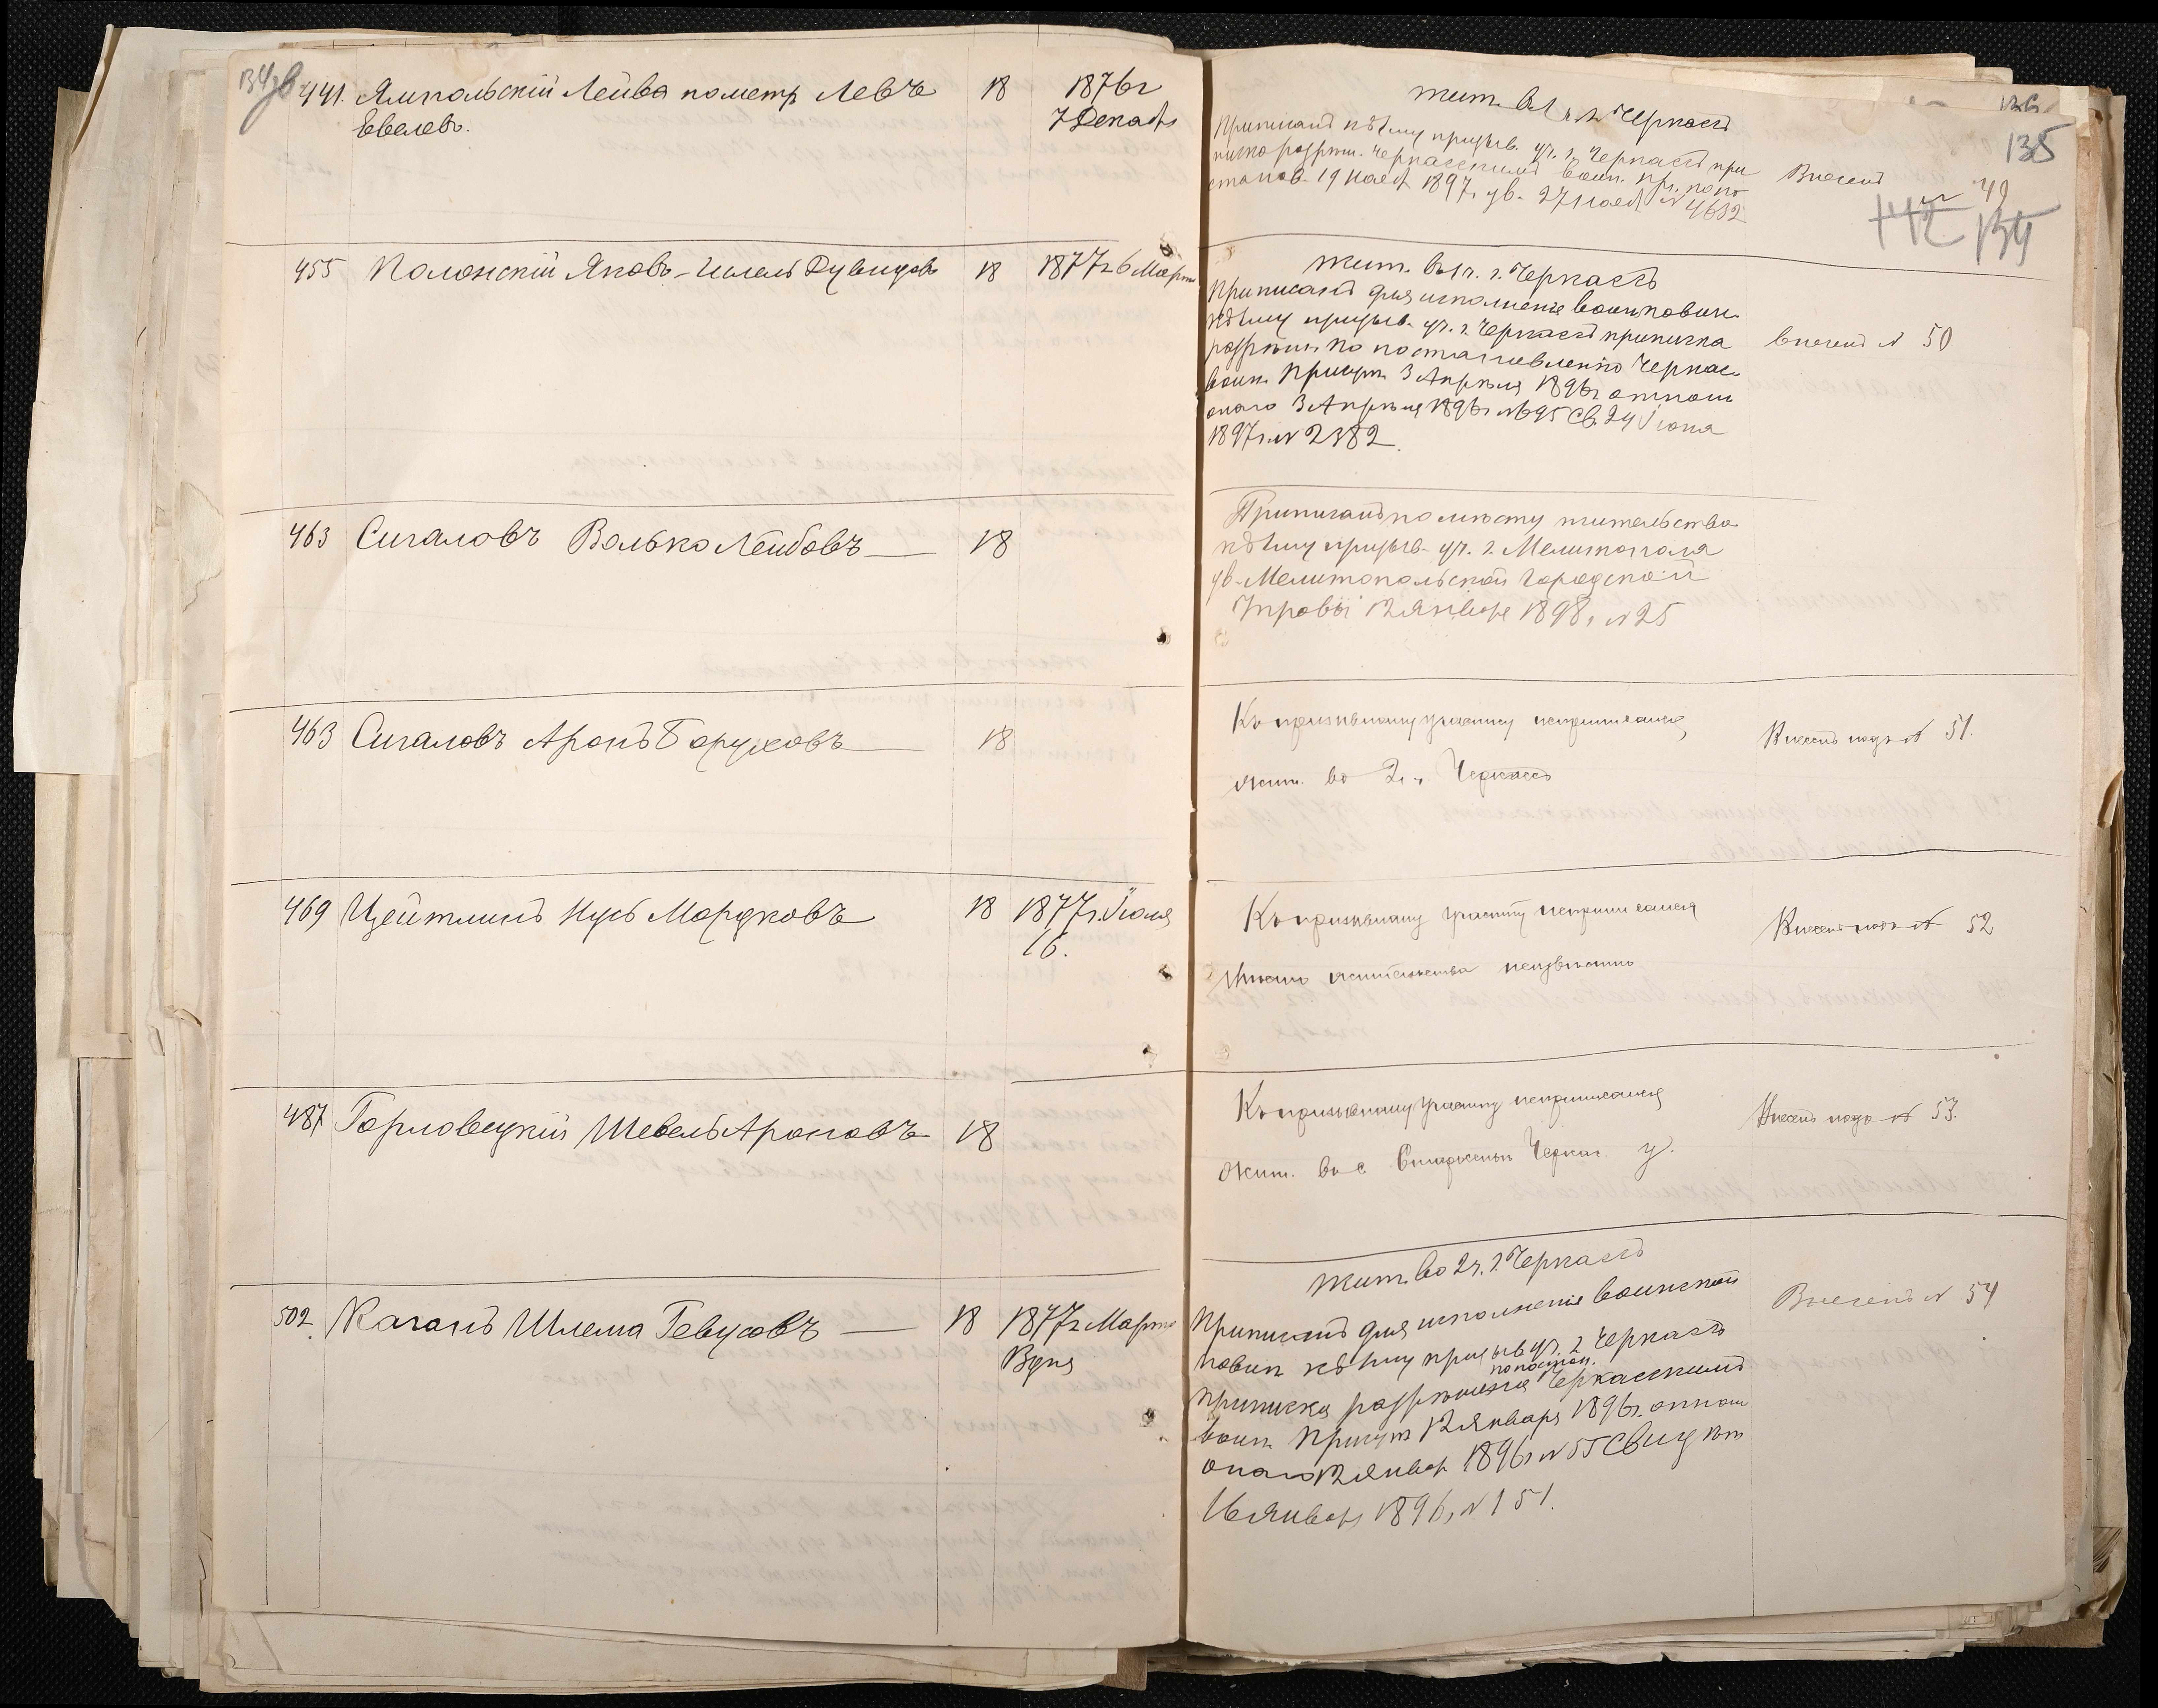 441. Ямпольскій Лейва по метр Левъ 18 1876г
Евелевъ. 7 Декаб
жит. въ 1 ч. г. Черкассъ
Приписанъ къ 1му призыв. уч. г. Черкассъ при
писка разреш. Черкасскимъ воин. пр. по по
станов. 19 Нояб 1897г. ув. 27 Нояб № 4632
Внесенъ 49
135
455 Полонскій Яковъ-Илель Дувидовъ 18 1877г. 6 Март
жит. въ 1 ч. г. Черкассъ
Приписанъ для исполненія воин. повин.
къ 1му призыв. уч. г. Черкассъ приписка
разрешен. по постановленію Черкас.
воин. Присут. 3 Апреля 1896г. отнош
онаго 3 Апреля 1896г. № 695 Св. 24 Іюня
1897г. № 2382.
внесенъ № 50
463 Сигаловъ Волько Лейбовъ 18
Приписанъ по месту жительства
къ 1му призыв. уч. г. Мелитополя
ув. Мелитопольской Городской
Управы 12 Января 1898г. № 25
463 Сигаловъ Аронъ Боруховъ 18
Къ призывному участку неприписанъ
жит. во 2 ч. Черкассъ
Внесенъ подъ № 51.
469 Цейтлинъ Нусь Мордковъ 18 1877г. Іюля
16.
Къ призывному участку неприписанъ
Место жительства неизвестно
Внесенъ подъ № 52
487 Горловецкій Шевель Ароновъ 18
Къ призывному участку неприписанъ
Жит. въ с. Черкас. у.
Внесенъ подъ № 53.
502. Каганъ Шлема Гевусовъ 18 1877г. Марта
жит. во 2 ч. г. Черкассъ
Приписанъ для исполненія воинской
повин. къ 1му призыв уч. г. Черкассъ
по постан.
приписка разрешена Черкасскимъ
воин. Присут 12 Января 1896г. отнош
онаго 12 Январ 1896г. № 55 Свид
16 Января 1896г. № 151.
Внесенъ № 54